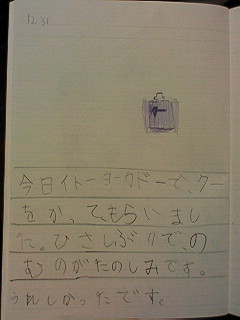 12.31
今日イトーヨーカドーで、クー
をかってもらいまし
た。ひさしぶりで、の
むのがたのしみです。
うれしかったです。